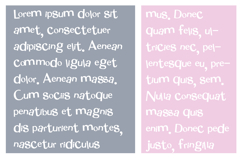 Lorem ipsum dolor sit
amet, consectetuer
adipiscing elit. Aenean
commodo ligula eget
dolor. Aenean massa.
Cum sociis natoque
penatibus et magnis
dis parturient montes,
nascetur ridiculus
mus. Donec
quam felis, ul-
tricies nec, pel-
lentesque eu, pre-
tium quis, sem.
Nulla consequat
massa quis
enim. Donec pede
justo, fringilla